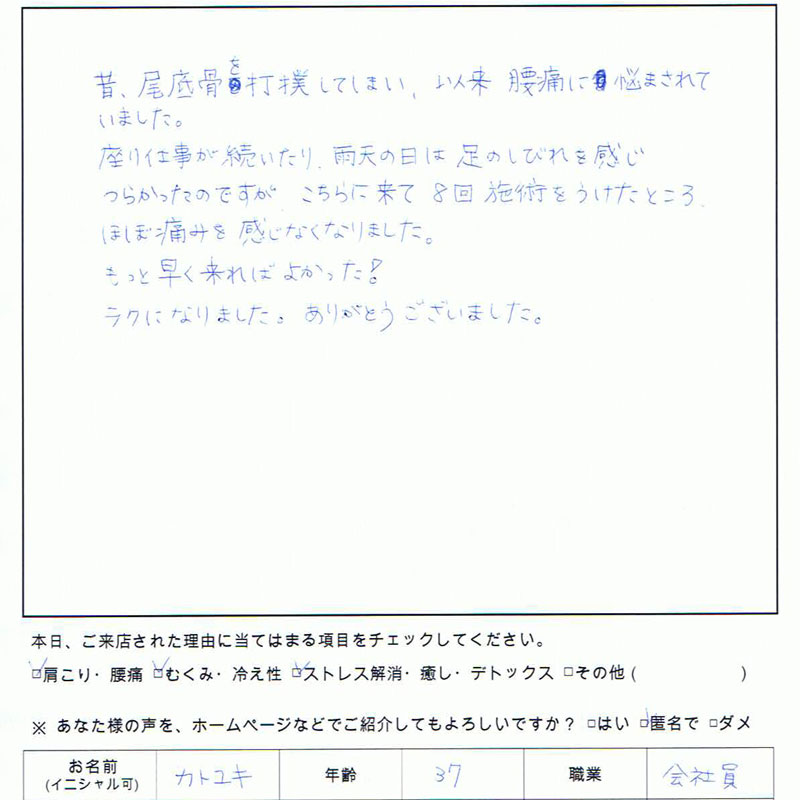 昔、尾底骨を打撲してしまい、以来 腰痛に悩まされて
いました。
座り仕事が続いたり、雨天の日は足のしびれを感じ
つらかったのですが、こちらに来て 8回 施術をうけたところ、
ほぼ痛みを感じなくなりました。
もっと早く来ればよかった!
ラクになりました。ありがとうございました。
本日、ご来店された理由に当てはまる項目をチェックしてください。
☑肩こり・腰痛 ☑むくみ・冷え性 ☑ストレス解消・癒し・デトックス □その他 ( )
※ あなた様の声を、ホームページなどでご紹介してもよろしいですか? □はい ☑匿名で □ダメ
お名前 カトユキ 年齢 37 職業 会社員
(イニシャル可)